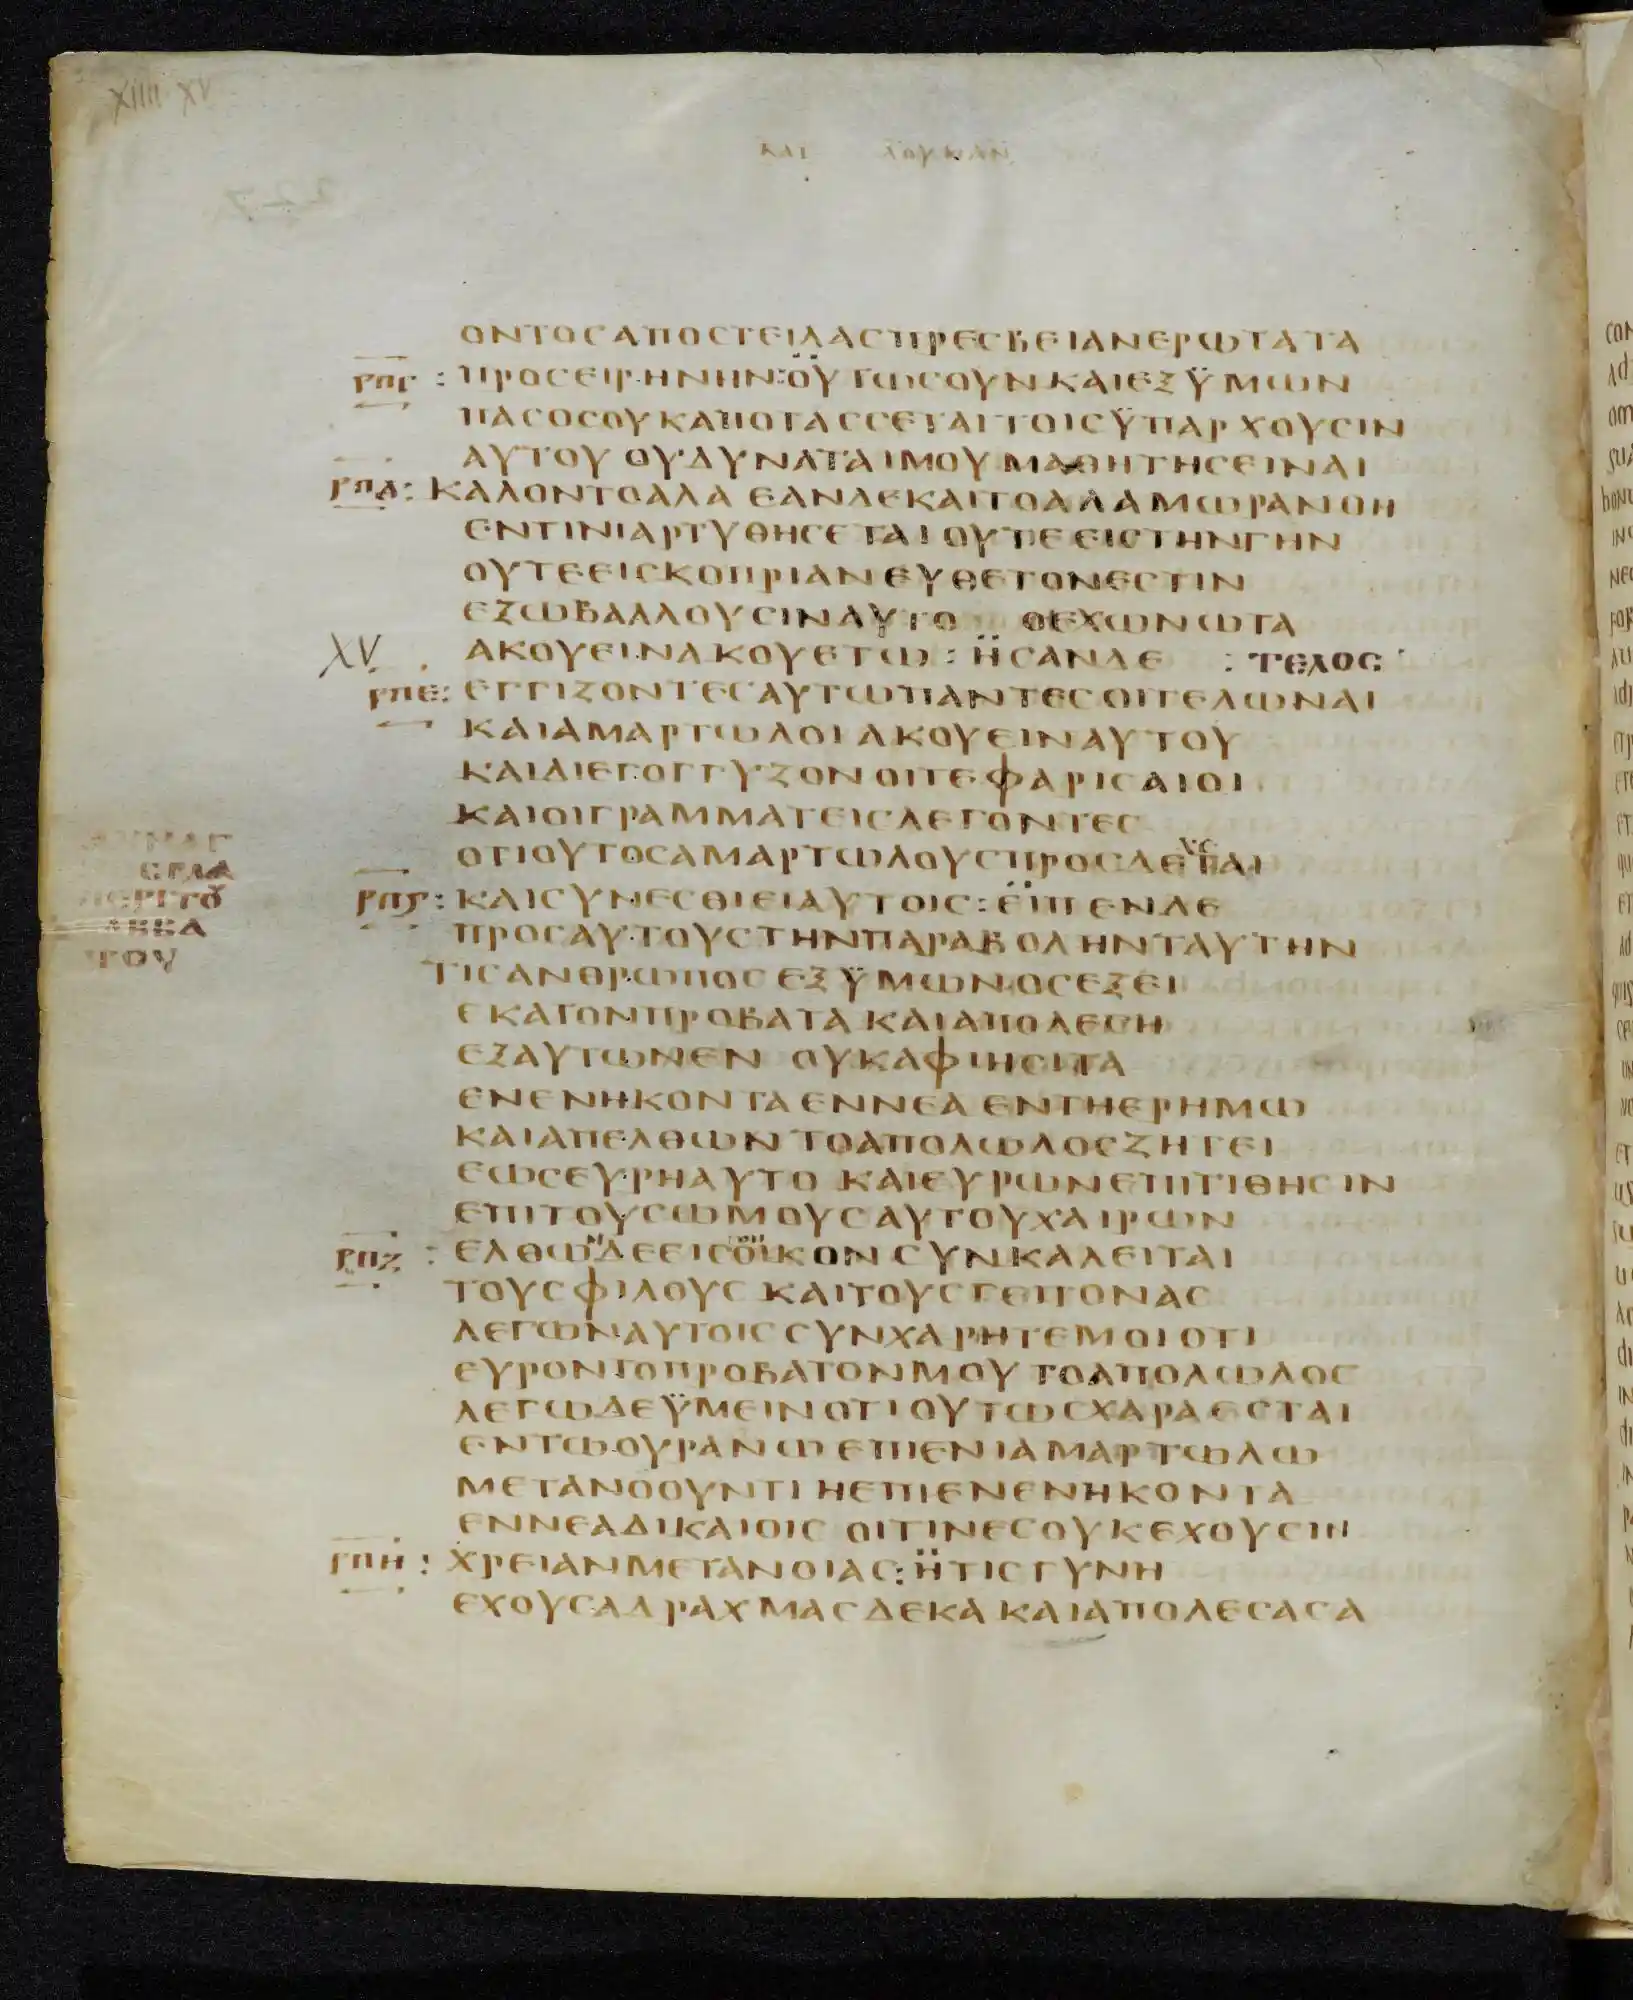 XIIII XV
ΚΑΤ ΛΟΥΚΑΝ
ΟΝΤΟCΑΠΟCΤΕΙΛΑCΠΡΕCΒΕΙΑΝΕΡΩΤΑΤΑ
ΡΠΓ : ΠΡΟCΕΙΡΗΝΗΝ:ΟΥΤΩCΟΥΝΚΑΙΕΞΫΜΩΝ
ΠΑCΟCΟΥΚΑΠΟΤΑCCΕΤΑΙΤΟΙCΫΠΑΡΧΟΥCΙΝ
ΑΥΤΟΥ ΟΥΔΥΝΑΤΑΙΜΟΥΜΑΘΗΤΗCΕΙΝΑΙ
ΡΠΔ: ΚΑΛΟΝΤΟΑΛΑ ΕΑΝΔΕΚΑΙΤΟΑΛΑΜΩΡΑΝΘΗ
ΕΝΤΙΝΙΑΡΤΥΘΗCΕΤΑΙ ΟΥΤΕΕΙCΤΗΝΓΗΝ
ΟΥΤΕΕΙCΚΟΠΡΙΑΝΕΥΘΕΤΟΝΕCΤΙΝ
ΕΞΩΒΑΛΛΟΥCΙΝΑΥΤΟ ΟΕΧΩΝΩΤΑ
XV ΑΚΟΥΕΙΝΑΚΟΥΕΤΩ: ΗCΑΝΔΕ : ΤΕΛΟC:
ΡΠΕ: ΕΓΓΙΖΟΝΤΕCΑΥΤΩΠΑΝΤΕCΟΙΤΕΛΩΝΑΙ
ΚΑΙΑΜΑΡΤΩΛΟΙΑΚΟΥΕΙΝΑΥΤΟΥ
ΚΑΙΔΙΕΓΟΓΓΥΖΟΝΟΙΤΕΦΑΡΙCΑΙΟΙ
ΚΑΙΟΙΓΡΑΜΜΑΤΕΙCΛΕΓΟΝΤΕC
ΟΤΙΟΥΤΟCΑΜΑΡΤΩΛΟΥCΠΡΟCΔΕΧΕΤΑΙ
ΡΠϚ: ΚΑΙCΥΝΕCΘΙΕΙΑΥΤΟΙC:ΕΙΠΕΝΔΕ
ΠΡΟCΑΥΤΟΥCΤΗΝΠΑΡΑΒΟΛΗΝΤΑΥΤΗΝ
ΤΙCΑΝΘΡΩΠΟCΕΞΫΜΩΝΟCΕΞΕΙ
ΕΚΑΤΟΝΠΡΟΒΑΤΑ ΚΑΙΑΠΟΛΕCΗ
ΕΞΑΥΤΩΝΕΝ ΟΥΚΑΦΙΗCΙΤΑ
ΕΝΕΝΗΚΟΝΤΑΕΝΝΕΑ ΕΝΤΗΕΡΗΜΩ
ΚΑΙΑΠΕΛΘΩΝΤΟΑΠΟΛΩΛΟCΖΗΤΕΙ
ΕΩCΕΥΡΗΑΥΤΟ ΚΑΙΕΥΡΩΝΕΠΙΤΙΘΗCΙΝ
ΕΠΙΤΟΥCΩΜΟΥCΑΥΤΟΥΧΑΙΡΩΝ
ΡΠΖ : ΕΛΘΩΝΔΕΕΙCΤΟΝΟΙΚΟΝCΥΝΚΑΛΕΙΤΑΙ
ΤΟΥCΦΙΛΟΥC ΚΑΙΤΟΥCΓΕΙΤΟΝΑC
ΛΕΓΩΝΑΥΤΟΙCCΥΝΧΑΡΗΤΕΜΟΙΟΤΙ
ΕΥΡΟΝΤΟΠΡΟΒΑΤΟΝΜΟΥΤΟΑΠΟΛΩΛΟC
ΛΕΓΩΔΕΫΜΕΙΝΟΤΙΟΥΤΩCΧΑΡΑΕCΤΑΙ
ΕΝΤΩΟΥΡΑΝΩΕΠΙΕΝΙΑΜΑΡΤΩΛΩ
ΜΕΤΑΝΟΟΥΝΤΙ ΗΕΠΙΕΝΕΝΗΚΟΝΤΑ
ΕΝΝΕΑΔΙΚΑΙΟΙC ΟΙΤΙΝΕCΟΥΚΕΧΟΥCΙΝ
ΡΠΗ : ΧΡΕΙΑΝΜΕΤΑΝΟΙΑC:ΗΤΙCΓΥΝΗ
ΕΧΟΥCΑΔΡΑΧΜΑCΔΕΚΑ ΚΑΙΑΠΟΛΕCΑCΑ